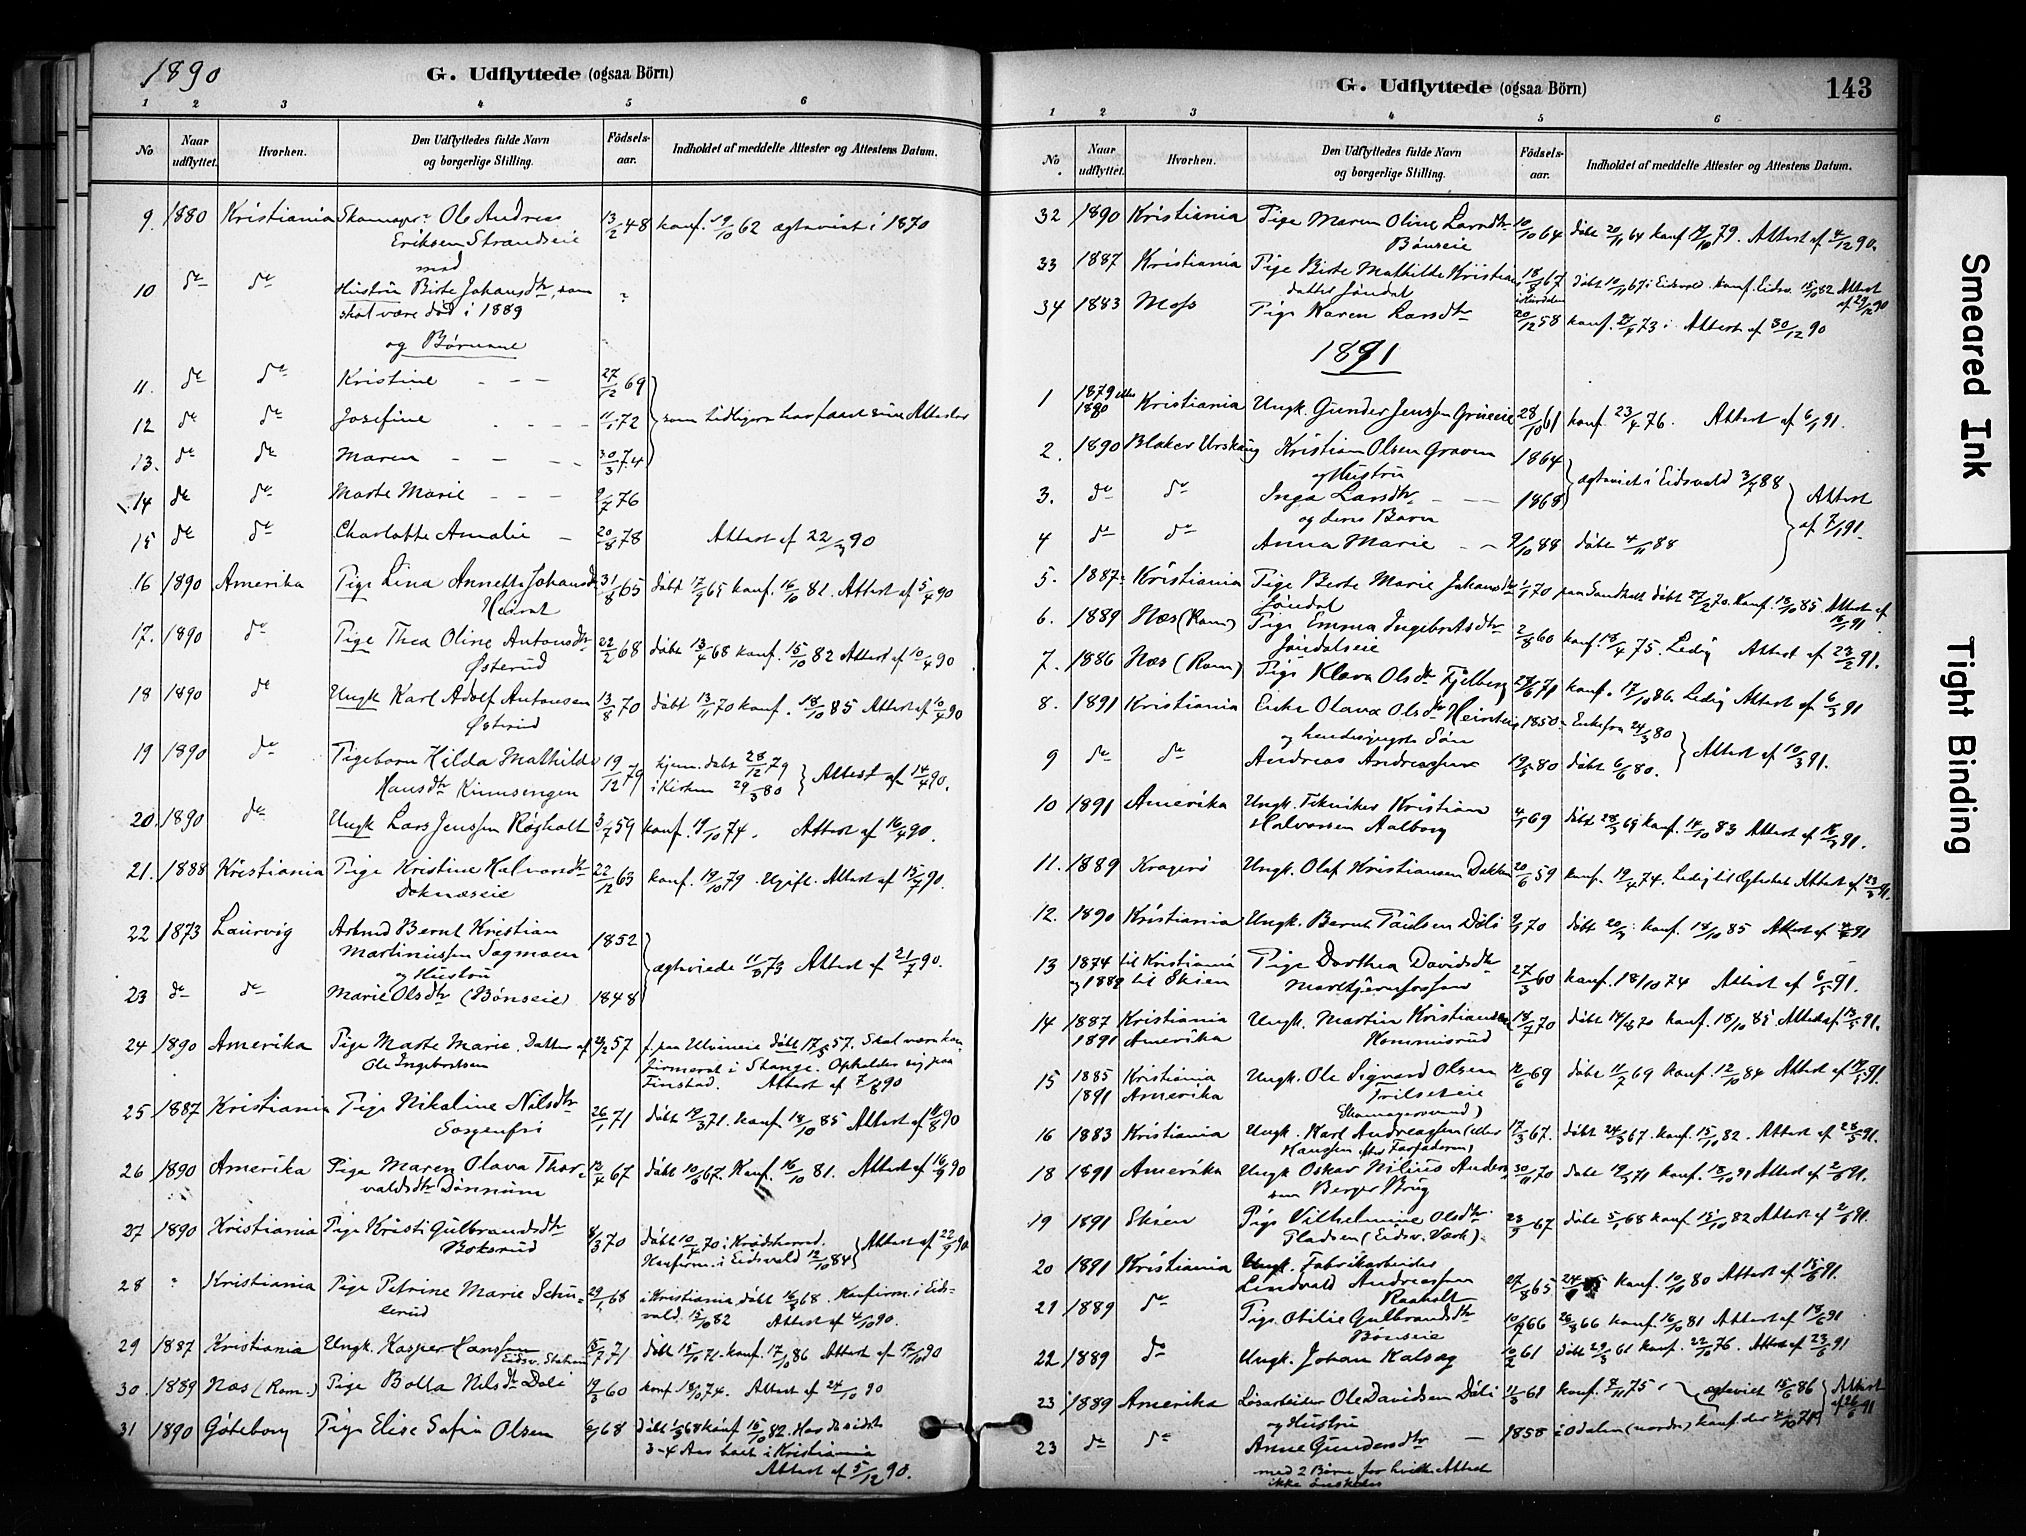 1890
G. Udflyttede (ogsaa Börn)
1 2 3 4 5 6
No Naar udflyttet. Hvorhen. Den Udflyttedes fulde Navn og borgerlige Stilling. Födselsaar. Indholdet af meddelte Attester og Attestens Datum.
9. 1880 Kristiania Ole Andreas 13/2 48 konf. 62 ægteviet i 1870
Eriksen Strandseie
med
10 do do Hustru Birte Johansdtr, som
skal være död i 1889
og Börnene
11. do do Kristine - - - 27/12 69
12 do do Josefine - - - 11/1 72 som tidligere har faaet sine Attester
13. do do Maren - - - 30/3 74
14 do do Marte Marie - - - 76
15 do do Charlotte Amalie - 20/8 78 Attest af 90
16 1890 Amerika Pige Lina Annette Johansdtr 31/8 65 döbt 17/9 65 konf. 16/10 81. Attest af 5/4 90
17. 1890 do Pige Thea Oline Antonsdtr 22/2 68 döbt 13/4 68 konf. 15/10 82 Attest af 10/4 90
Østerud
18 1890 do Ungk Karl Adolf Antonsen 13/8 70 döbt 13/11 70 konf. 18/10 85 Attest af 10/4 90
Østerud
19 1890 do Pigebarn Hilda Mathilde 19/12 79 hjem. döbt 28/12 79
Hansdtr i Kirken 29/3 80 Attest af 14/4 90.
20. 1890 do Ungk Lars Jenssen Röghalt 59 konf. 74. Attest af 16/4 90.
21. 1888 Kristiania Pige Kristine Halvorsdtr 22/12 63 konf. 19/10 79. Ugift. Attest af 90.
Doknæseie
22 1873 Laurvig Arbmd Bernt Kristian 1852
Martiniussen Sagmoen
og Hustru ægteviede 73 Attest af 21/7 90.
23 do do Marie Olsdtr (Bönseie) 1848
24 1890 Amerika Pige Marte Marie. Datter af 57 f. paa döbt 17/5 57. Skal være kon-
Ole Ingebretsen firmeret i Stange. Opholder sig paa
Finstad. Attest af 90
25 1887 Kristiania Pige Nikoline Nilsdtr 26/1 71 döbt 19/3 71. konf. 18/10 85 Attest af 90
Sorgenfri
26 1890 Amerika Pige Maren Olava Thor- 12/4 67 döbt 10/6 67. Konf. 16/10 81. Attest af 16/9 90
valdsdtr Dönnum
27 1890 Kristiania Pige Kristi Gulbrandsdtr 70 döbt 10/4 70 i Krödsherred.
Konfirm. i Eidsvold 12/10 84 Attest af 22/9 90
28 " Kristiania Pige Petrine Marie 29/1 68 i Kristiania döbt 68. Konfirm. i Eids-
vold 15/10 82 Attest af 4/10 90.
29 1887 Kristiania Ungk. Kasper Hanssen 15/7 71 döbt 15/10 71. konf. 17/10 86 Attest af 17/10 90
Eidsv. Station
30. 1889 Næs (Rom.) Pige Bolla Nilsdtr Döli 19/3 60 konf 74. Attest af 24/10 90
31 1890 Göteborg Pige Elise Sofie Olsen 68 döbt 68 konf 15/10 82. Har de sidste
3-4 Aar boet i Kristiania
Attest af 5/12 90.
G. Udflyttede (ogsaa Börn) 143
1 2 3 4 5 6
No. Naar udflyttet. Hvorhen. Den Udflyttedes fulde Navn og borgerlige Stilling. Födselsaar. Indholdet af meddelte Attester og Attestens Datum.
32 1890 Kristiania Pige Maren Oline Larsdtr 10/10 64 döbt 20/11 64 konf 19/10 79. Attest af 4/12 90.
Bönseie
33 1887 Kristiania Pige Birte Mathilde Kristians 18/8 67 döbt 10/11 67 i Eidsvold. konf. Eidsv. 15/10 82 Attest
datter Jöndal af 29/12 90
34 1883 Moss Pige Karen Larsdtr 20/12 58 konf. 73 i Attest af 30/12 90
1891
1 1879 eller 1880 Kristiania Ungk. Gunder Jenssen 28/10 61 konf. 23/4 76. Attest af 6/1 91.
2. 1890 Blaker Urskoug Kristian Olsen Graven 1864
og Hustru ægteviet i Eidsvold 88
3. do do Inga Larsdtr - - 1868 Attest
og deres Barn af 7/1 91.
4 do do Anna Marie - - 9/10 88 döbt 4/11 88
5. 1887 Kristiania Pige Berte Marie Johansdtr 70 döbt 27/2 70. Konf. 18/10 85. Attest af
Jöndal 91.
6. 1889 Næs (Rom) Pige Emma Ingebretsdtr 2/8 60 konf. 18/4 75. Ledig Attest af 23/2 91.
Jöndalseie
7. 1886 Næs (Rom) Pige Klara Olsdtr Fjelberg 27/6 71 konf. 17/10 86. Ledig Attest af 6/3 91
8. 1891 Kristiania Enke Olava Olsdtr 1850. Enke fra 80
og hendes yngste Sön Attest af 10/3 91.
9 do do Andreas Andreassen 19/5 80 döbt 6/6 80.
10 1891 Amerika Ungk. Tekniker Kristian 69 döbt 28/3 69 konf. 14/10 83 Attest af 18/3 91.
Halvorsen Aalborg
11. 1889 Kragerö Ungk. Olaf Kristiansen Dokken 20/6 59 konf. 19/4 74. Ledig til Ægteskab Attest af 23/3 91.
12. 1890 Kristiania Ungk. Bernt Paulsen Döli 70 döbt 20/3. konf. 18/10 85 Attest af 91
13 1874 til Kristiania Pige Dorthea Davidsdtr 27/3 60 konf. 18/10 74 Attest af 6/5 91.
og 1889 til Skien
14 1887 Kristiania Ungk. Martin Kristiansen 18/7 70 döbt 14/8 70 konf. 18/10 85 Attest af 13/5 91.
1891 Amerika Hommerud
15 1885 Kristiania Ungk. Ole Sigvard Olsen 12/6 69 döbt 11/7 69 konf. 12/10 84 Attest af 91.
1891 Amerika Trilseteie
16 1883 Kristiania Ungk. Karl Andreassen (eller 17/3 67. döbt 24/3 67. konf. 15/10 82. Attest af 28/5 91.
Hansen efter Farfaderen)
18 1891 Amerika Ungk Oskar Nilius Anders 30/11 70 döbt 19/3 71 konf. 18/10 Attest af 2/6 91.
sen Berger Brug
19 1891 Skien Pige Vilhelmine Olsdtr. 67 döbt 5/1 68 konf. 15/10 82 Attest af 2/6 91.
Pladsen (Eidsv. Værk).
20 1891 Kristiania Ungk. Fabrikarbeider
Lindvald Andreassen 27/8 65 konf. 10/10 80 Attest af 15/6 91.
Raaholt
21 1889 do Pige Otilie Gulbrandsdtr 10/7 66 26/8 66 konf. 16/10 81 Attest af 18/6 91
Bönseie
22 1889 do Ungk. Johan Kalsæg 10/2 61 döbt 29/3 61 konf. 22/10 76. Attest af 23/6 91
23 1889 Amerika Lösarbeider Ole Davidsen Döli konf. 75. ægteviet 15/6 86 Attest
og Hustru af 26/6 91
23 do do Anne Gundersdtr - 1858 i Odalen (nordre) konf. der
med 2 Börn, for hvilke Attest
ikke önskedes
Smeared Ink
Tight Binding